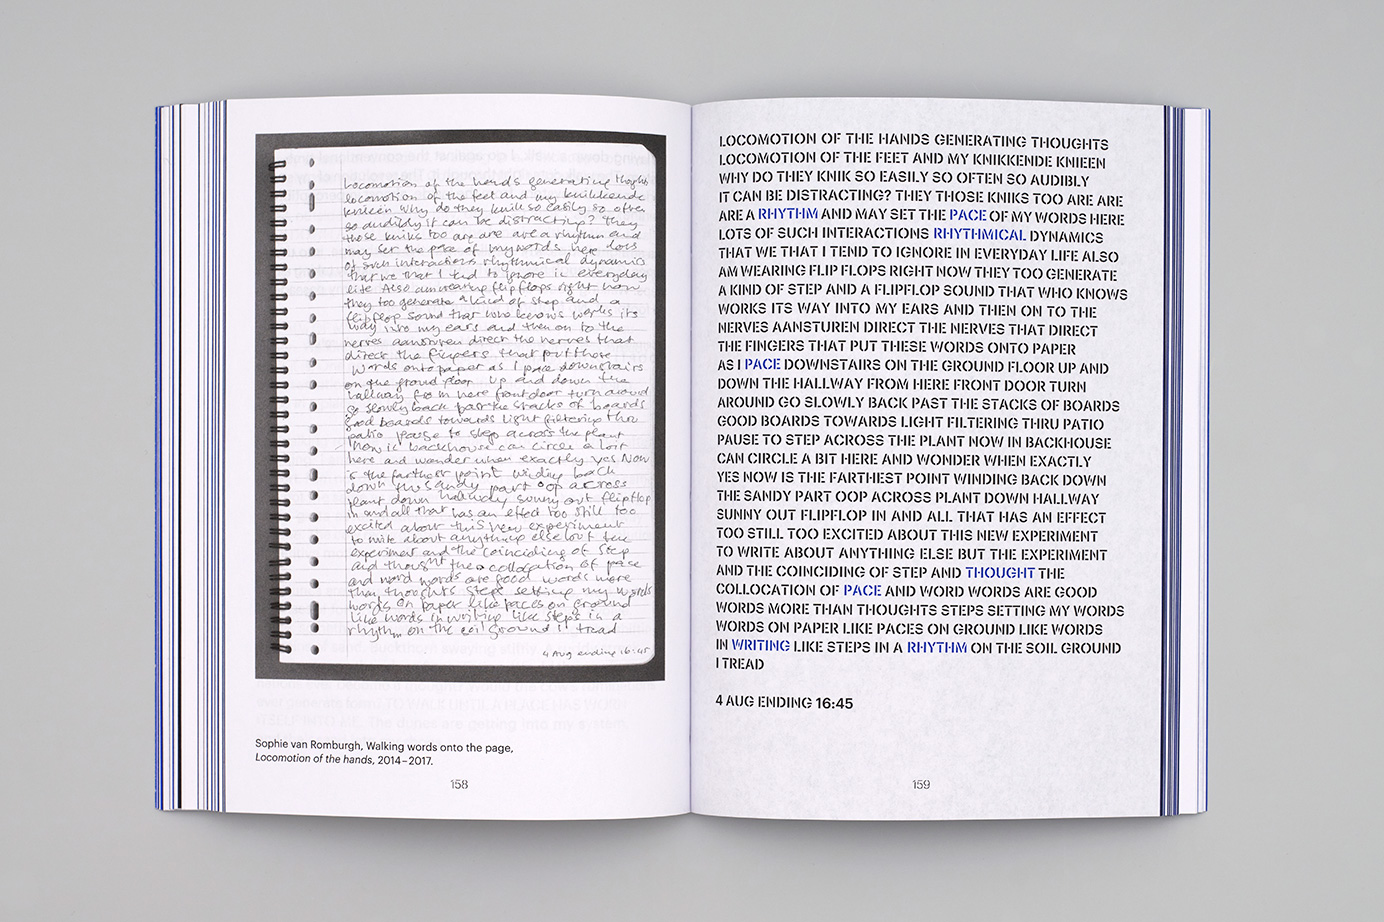 Locomotion of the hands generating thoghts
locomotion of the feet and my knikkende
knieën why do they knik so easily so often
so audibly it can be distracting? they
those kniks too are are are a rhythm and
may set the pace of my words here lots
of such interactions rhythmical dynamics
that we that I tend to ignore in everyday
life Also am wearing flipflops right now
they too generate a kind of step and a
flipflop sound that who knows works its
way into my ears and then on to the
nerves aansturen direct the nerves that
direct the fingers that put those
words onto paper as I pace downstairs
on the ground floor up and down the
hallway from here front door turn around
go slowly back past the stacks of boards
good boards towards light filtering thru
patio pause to step across the plant
now in backhouse can circle a bit
here and wonder when exactly yes Now
is the farthest point winding back
down the sandy part oop across
plant down hallway sunny out flipflop
in and all that has an effect too still too
excited about this new experiment
to write about anything else but the
experiment and the coinciding of step
and thought the collocation of pace
and word words are good words more
than thoughts steps setting my words
words on paper like paces on ground
like words in writing like steps in a
rhythm on the soil ground I tread
4 Aug ending 16:45
Sophie van Romburgh, Walking words onto the page,
Locomotion of the hands, 2014–2017.
158
LOCOMOTION OF THE HANDS GENERATING THOUGHTS
LOCOMOTION OF THE FEET AND MY KNIKKENDE KNIEEN
WHY DO THEY KNIK SO EASILY SO OFTEN SO AUDIBLY
IT CAN BE DISTRACTING? THEY THOSE KNIKS TOO ARE ARE
ARE A RHYTHM AND MAY SET THE PACE OF MY WORDS HERE
LOTS OF SUCH INTERACTIONS RHYTHMICAL DYNAMICS
THAT WE THAT I TEND TO IGNORE IN EVERYDAY LIFE ALSO
AM WEARING FLIP FLOPS RIGHT NOW THEY TOO GENERATE
A KIND OF STEP AND A FLIPFLOP SOUND THAT WHO KNOWS
WORKS ITS WAY INTO MY EARS AND THEN ON TO THE
NERVES AANSTUREN DIRECT THE NERVES THAT DIRECT
THE FINGERS THAT PUT THESE WORDS ONTO PAPER
AS I PACE DOWNSTAIRS ON THE GROUND FLOOR UP AND
DOWN THE HALLWAY FROM HERE FRONT DOOR TURN
AROUND GO SLOWLY BACK PAST THE STACKS OF BOARDS
GOOD BOARDS TOWARDS LIGHT FILTERING THRU PATIO
PAUSE TO STEP ACROSS THE PLANT NOW IN BACKHOUSE
CAN CIRCLE A BIT HERE AND WONDER WHEN EXACTLY
YES NOW IS THE FARTHEST POINT WINDING BACK DOWN
THE SANDY PART OOP ACROSS PLANT DOWN HALLWAY
SUNNY OUT FLIPFLOP IN AND ALL THAT HAS AN EFFECT
TOO STILL TOO EXCITED ABOUT THIS NEW EXPERIMENT
TO WRITE ABOUT ANYTHING ELSE BUT THE EXPERIMENT
AND THE COINCIDING OF STEP AND THOUGHT THE
COLLOCATION OF PACE AND WORD WORDS ARE GOOD
WORDS MORE THAN THOUGHTS STEPS SETTING MY WORDS
WORDS ON PAPER LIKE PACES ON GROUND LIKE WORDS
IN WRITING LIKE STEPS IN A RHYTHM ON THE SOIL GROUND
I TREAD
4 AUG ENDING 16:45
159